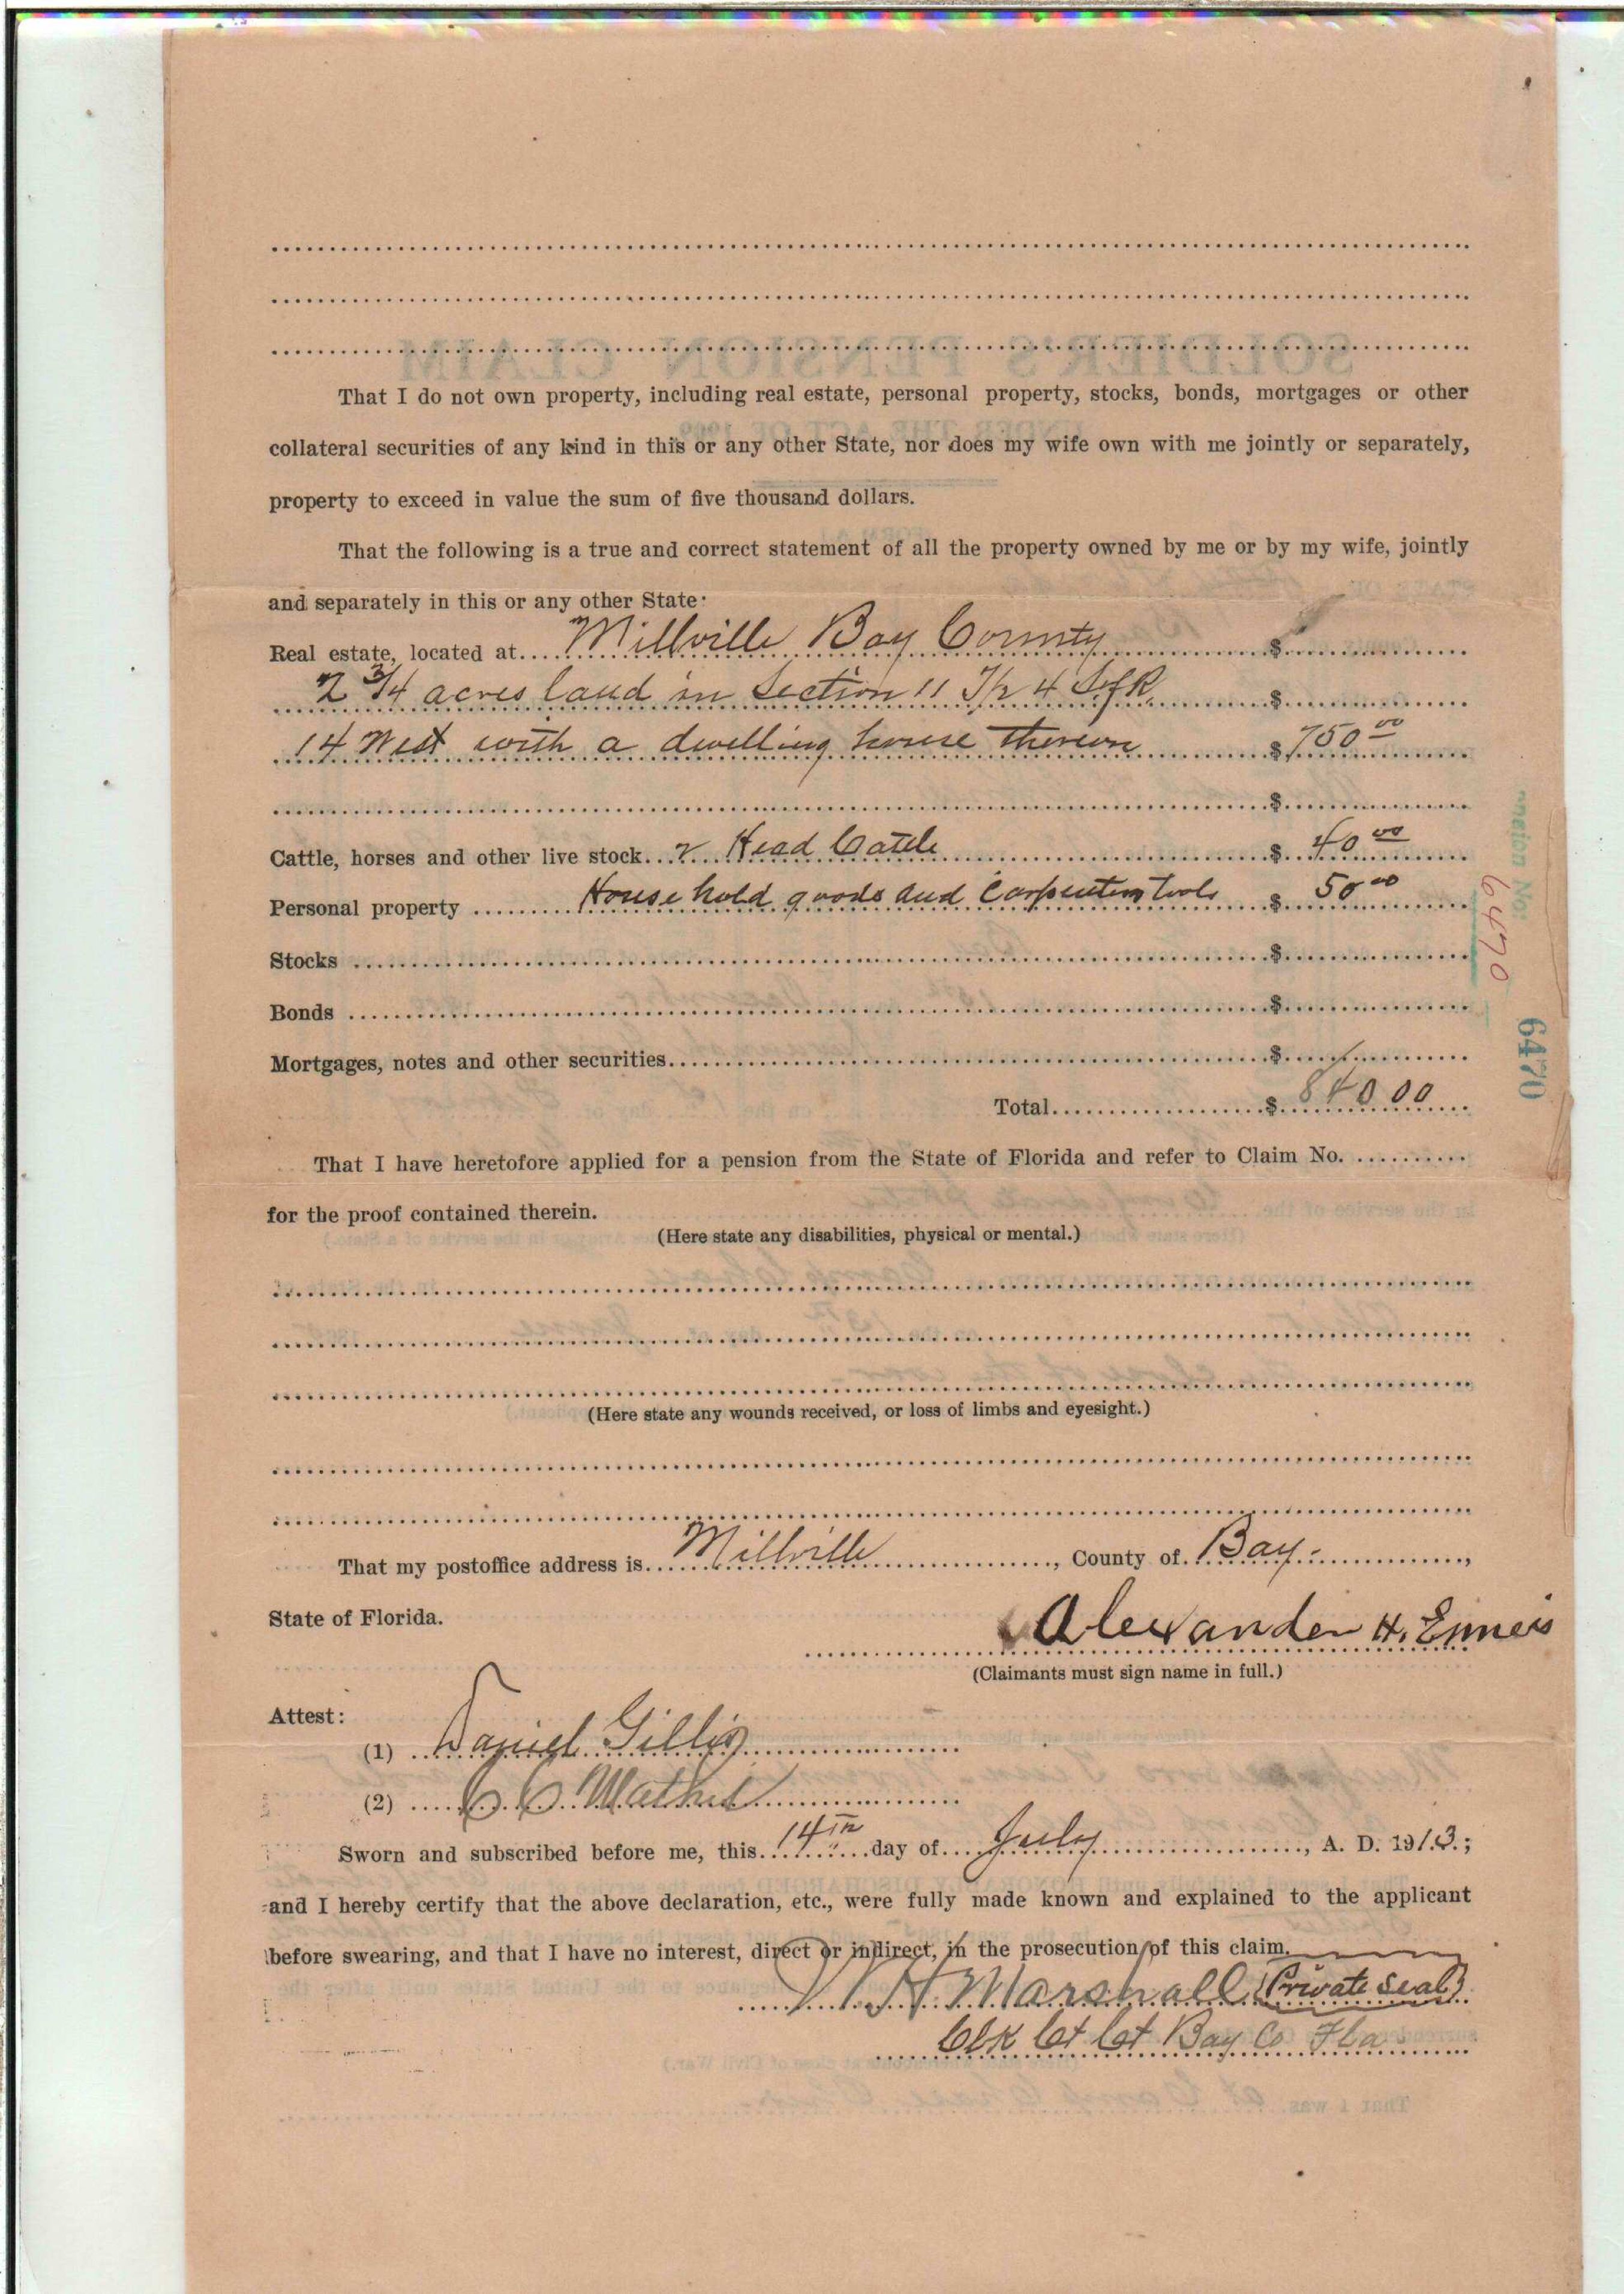 That I do not own property, including real estate, personal property, stocks, bonds, mortgages or other
collateral securities of any kind in this or any other State, nor does my wife own with me jointly or separately,
property to exceed in value the sum of five thousand dollars.
That the following is a true and correct statement of all the property owned by me or by my wife, jointly
and separately in this or any other State:
Real estate, located at Millville Bay County $
2 3/4 acres land in Section 11 Tp 4 S of R $
14 West with a dwelling house thereon $750 00
$
Cattle, horses and other live stock 2 Head Cattle $ 40 00
Personal property Household goods and Carpenters tools $ 50 00
Stocks $
Bonds $
Mortgages, notes and other securities $
Total $ 840 00
That I have heretofore applied for a pension from the State of Florida and refer to Claim No.
for the proof contained therein.
(Here state any disabilities, physical or mental.)
(Here state any wounds received, or loss of limbs and eyesight.)
That my postoffice address is Millville, County of Bay,
State of Florida.
Alexander H. Enneis
(Claimants must sign name in full.)
Attest:
(1) Daniel Gillis
(2) C C Mathis
Sworn and subscribed before me, this 14th day of July, A. D. 1913.;
and I hereby certify that the above declaration, etc., were fully made known and explained to the applicant
before swearing, and that I have no interest, direct or indirect, in the prosecution of this claim.
Marshall (Private Seal)
Clk Ct Ct Bay Co Fla
Pension No.
6470
6470